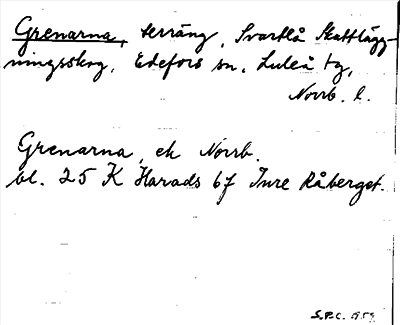 Grenarna, terräng, Svartlå Skattlägg-
ningsskog, Edefors sn, Luleå tg,
Norrb. l.
Grenarna, ek Norrb.
bl. 25 K Harads 6f Inre Råberget.
S.P.C. 1959